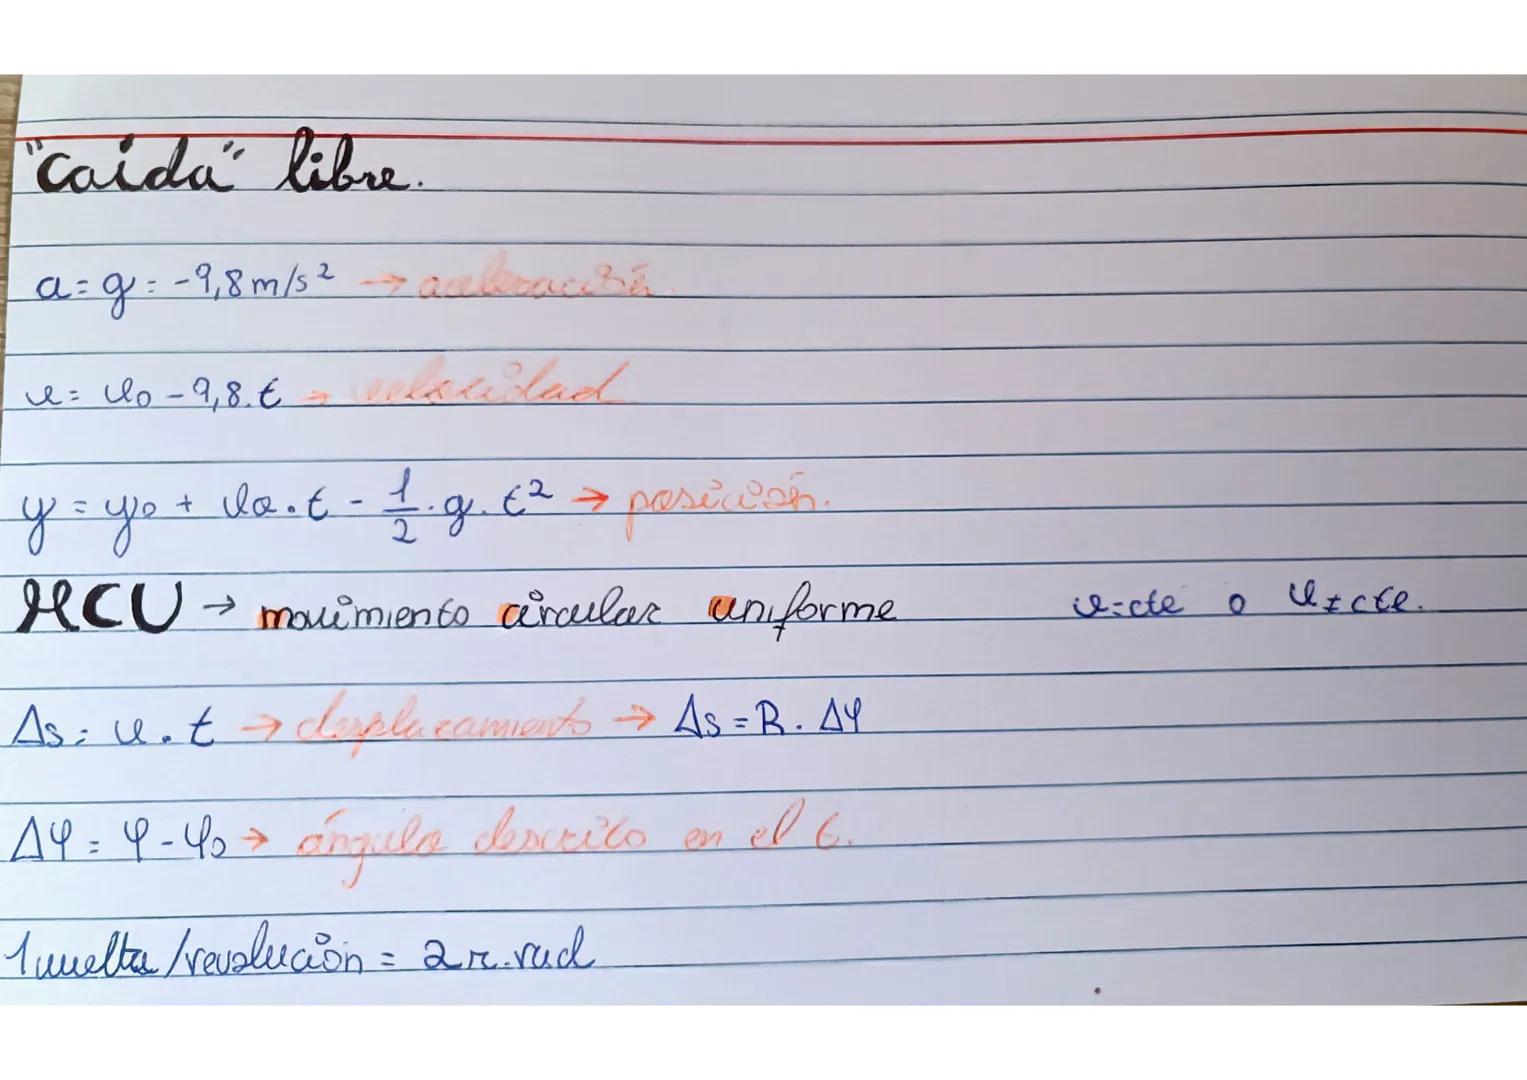 "Caída" libre.
a = g = -9,8 m/s² → aceleración.
v = v₀ - 9,8 . t → velocidad
y = y₀ + v₀ . t - 1/2 . g . t² → posición.
MCU → movimiento circular uniforme v = cte o v ≠ cte.
Δs = v . t → desplazamiento → Δs = R . Δφ
Δφ = φ - φ₀ → ángulo descrito en el t.
1 vuelta / revolución = 2π . rad